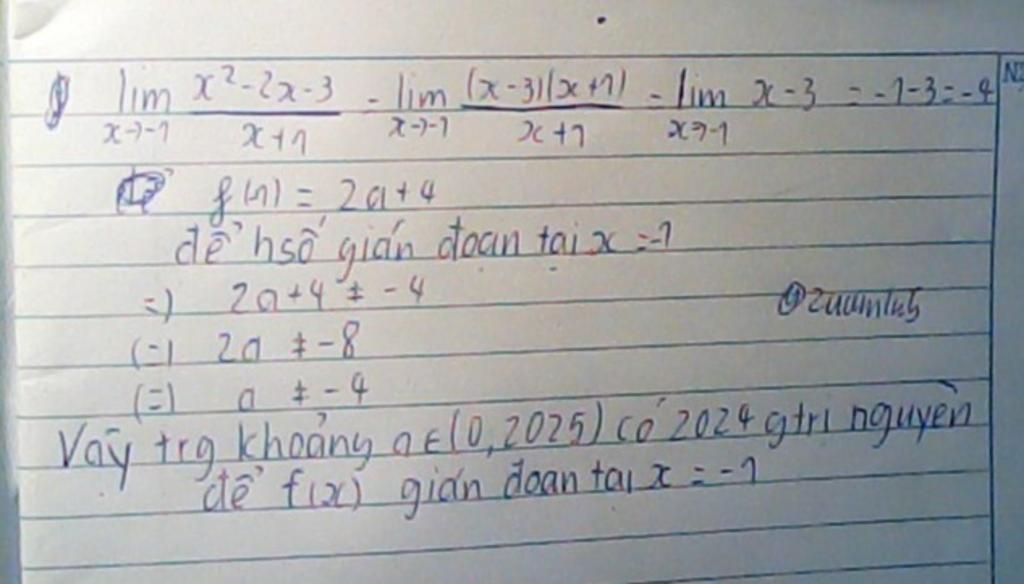 lim x→-1 x²-2x-3 / x+1 = lim x→-1 (x-3)(x+1) / x+1 = lim x→-1 x-3 = -1-3=-4
f(1) = 2a+4
để hsố gián đoạn tại x =-1
=) 2a+4 ≠ -4
(=) 2a ≠ -8
(=) a ≠ -4
Vậy trg khoảng a∈(0,2025) có 2024 gtri nguyên
để f(x) gián đoạn tại x = -1